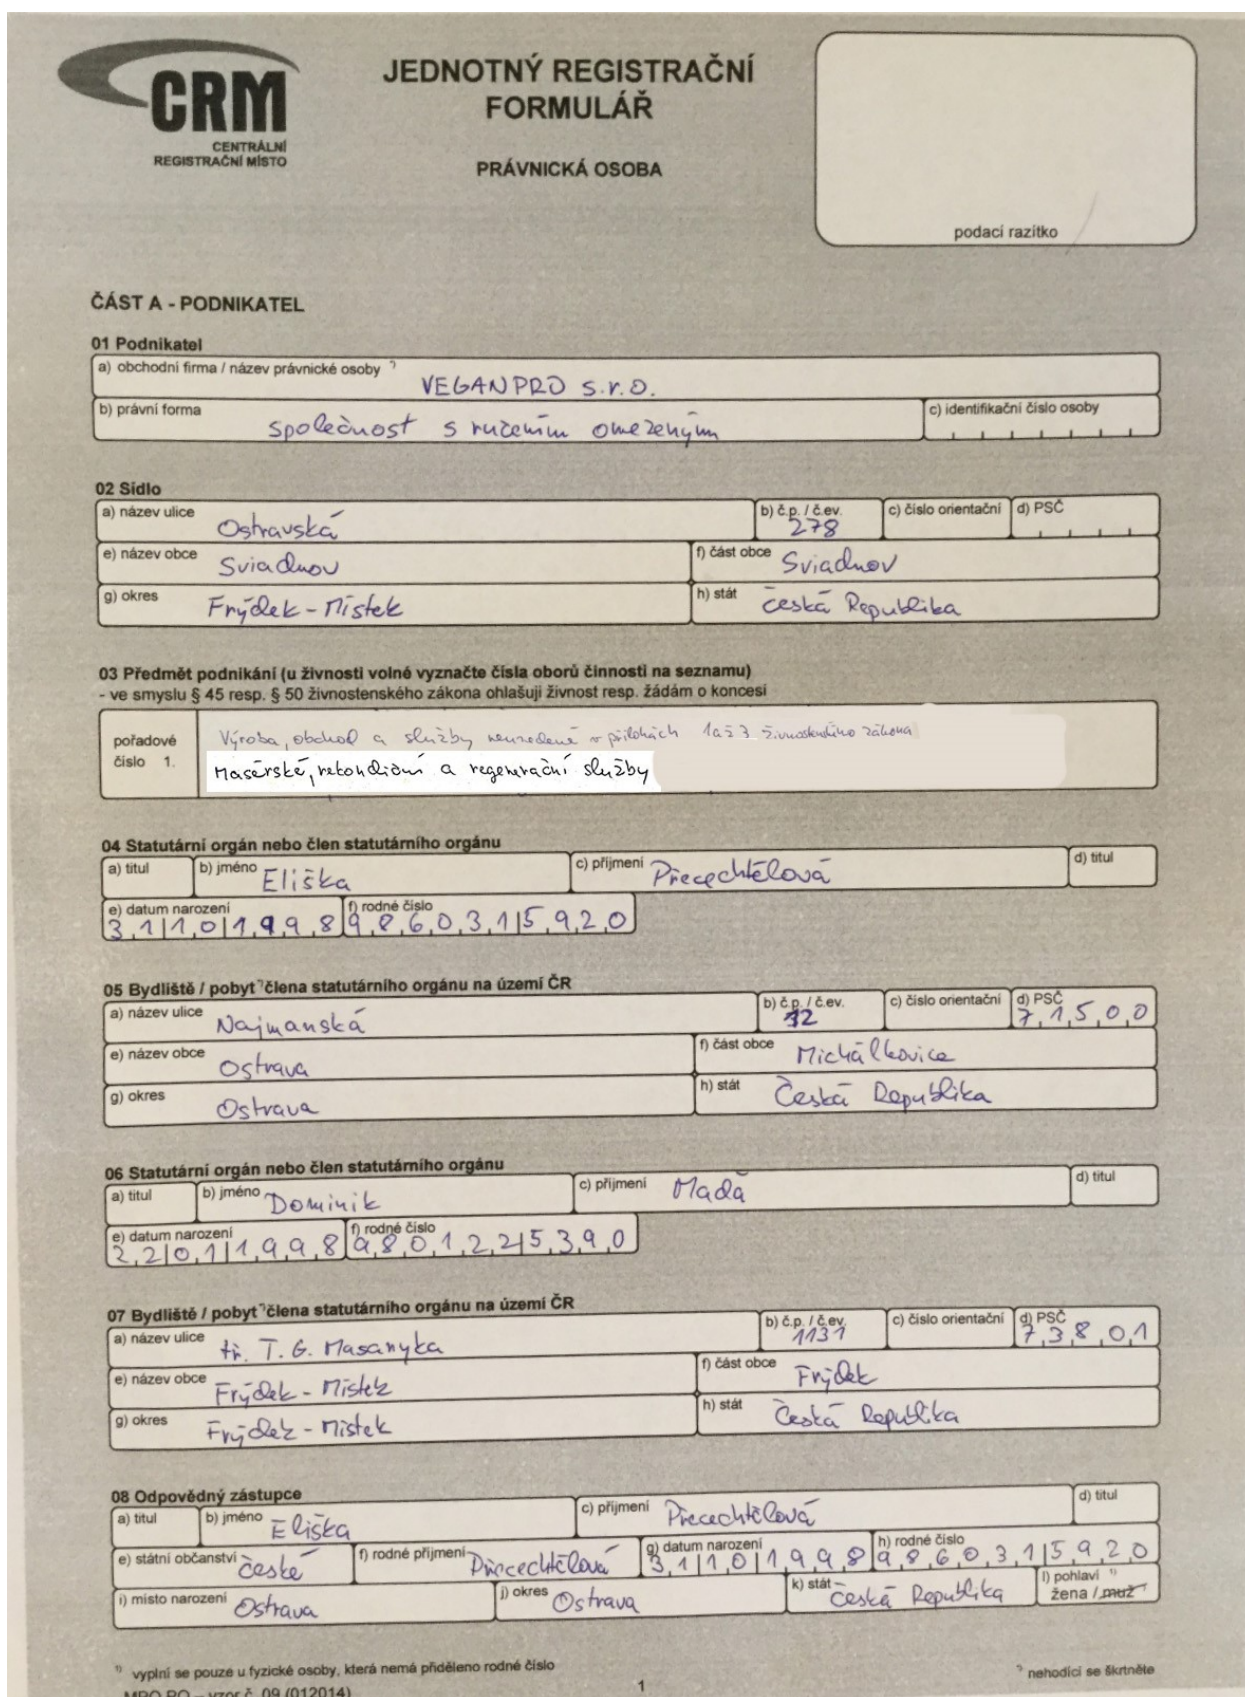 CRM
CENTRÁLNÍ
REGISTRAČNÍ MÍSTO
JEDNOTNÝ REGISTRAČNÍ
FORMULÁŘ
PRÁVNICKÁ OSOBA
podací razítko
ČÁST A - PODNIKATEL
01 Podnikatel
a) obchodní firma / název právnické osoby *)
VEGANPRO s.r.o.
b) právní forma společnost s ručením omezeným c) identifikační číslo osoby
02 Sídlo
a) název ulice Ostravská b) č.p. / č.ev. 278 c) číslo orientační d) PSČ
e) název obce Sviadnov f) část obce Sviadnov
g) okres Frýdek - Místek h) stát Česká Republika
03 Předmět podnikání (u živnosti volné vyznačte čísla oborů činnosti na seznamu)
- ve smyslu § 45 resp. § 50 živnostenského zákona ohlašuji živnost resp. žádám o koncesi
pořadové číslo 1.
Výroba, obchod a služby neuvedené v přílohách 1 až 3 živnostenského zákona
Masérské, rekondiční a regenerační služby
04 Statutární orgán nebo člen statutárního orgánu
a) titul b) jméno Eliška c) příjmení Přecechtělová d) titul
e) datum narození 31 10 1998 f) rodné číslo 986031 5920
05 Bydliště / pobyt *) člena statutárního orgánu na území ČR
a) název ulice Najmanská b) č.p. / č.ev. 32 c) číslo orientační d) PSČ 71500
e) název obce Ostrava f) část obce Michálkovice
g) okres Ostrava h) stát Česká Republika
06 Statutární orgán nebo člen statutárního orgánu
a) titul b) jméno Dominik c) příjmení Mada d) titul
e) datum narození 22 01 1998 f) rodné číslo 980122 5390
07 Bydliště / pobyt *) člena statutárního orgánu na území ČR
a) název ulice tř. T. G. Masaryka b) č.p. / č.ev. 1131 c) číslo orientační d) PSČ 73801
e) název obce Frýdek - Místek f) část obce Frýdek
g) okres Frýdek - Místek h) stát Česká Republika
08 Odpovědný zástupce
a) titul b) jméno Eliška c) příjmení Přecechtělová d) titul
e) státní občanství české f) rodné příjmení Přecechtělová g) datum narození 31 10 1998 h) rodné číslo 986031 5920
i) místo narození Ostrava j) okres Ostrava k) stát Česká Republika l) pohlaví 1) žena / muž *)
1) vyplní se pouze u fyzické osoby, která nemá přiděleno rodné číslo
*) nehodící se škrtněte
MPO PO – vzor č. 09 (012014)
1